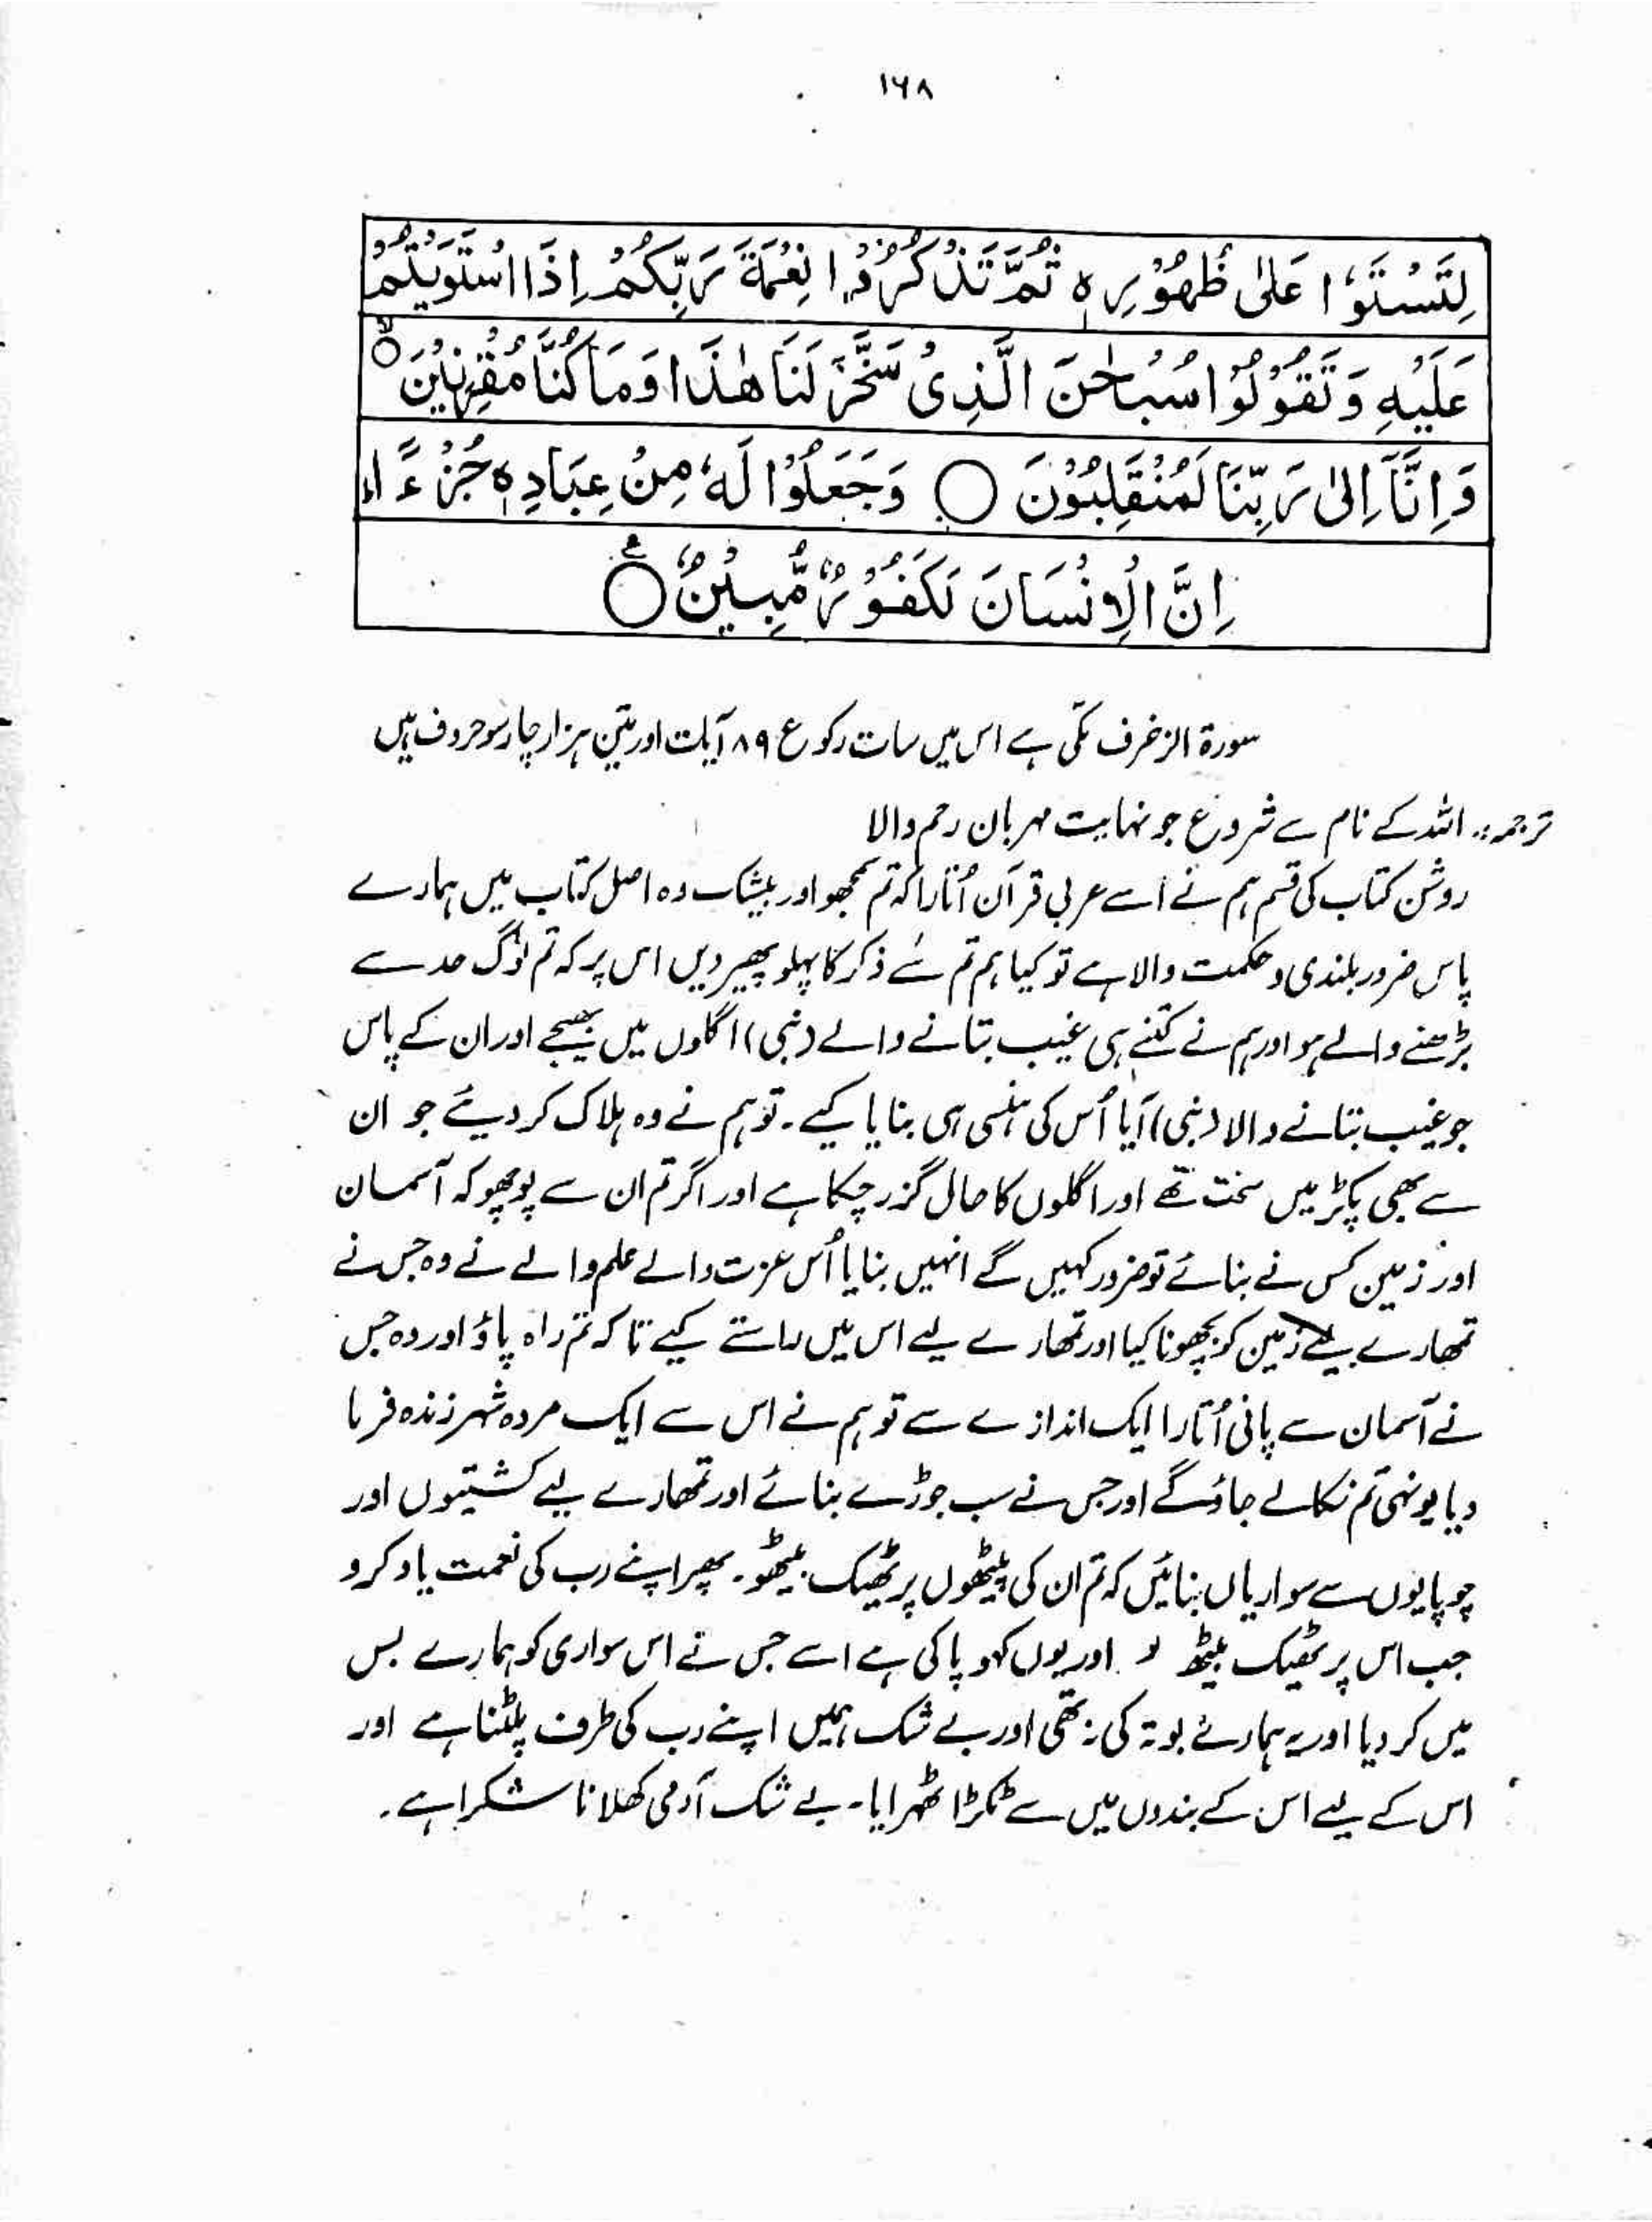 ۱۶۸
لِتَسْتَوٗا عَلٰی ظُهُوْرِهٖ ثُمَّ تَذْكُرُوْا نِعْمَةَ رَبِّكُمْ اِذَا اسْتَوَیْتُمْ
عَلَیْهِ وَتَقُوْلُوْا سُبْحٰنَ الَّذِیْ سَخَّرَ لَنَا هٰذَا وَمَا كُنَّا مُقْرِنِیْنَ ○ۙ
وَاِنَّاۤ اِلٰی رَبِّنَا لَمُنْقَلِبُوْنَ ○ وَجَعَلُوْا لَهٗ مِنْ عِبَادِهٖ جُزْءًا ؕ
اِنَّ الْاِنْسَانَ لَكَفُوْرٌ مُّبِیْنٌ ○ؕ
سورۃ الزخرف مکّی ہے اس میں سات رکوع ۸۹ آیات اور تین ہزار چار سو حروف ہیں
ترجمہ:۔ اللہ کے نام سے شروع جو نہایت مہربان رحم والا
روشن کتاب کی قسم ہم نے اسے عربی قرآن اُتارا کہ تم سمجھو اور بیشک وہ اصل کتاب میں ہمارے
پاس ضرور بلندی و حکمت والا ہے تو کیا ہم تم سے ذکر کا پہلو پھیر دیں اس پر کہ تم لوگ حد سے
بڑھنے والے ہو اور ہم نے کتنے ہی غیب بتانے والے (نبی) اگلوں میں بھیجے اور ان کے پاس
جو غیب بتانے والا (نبی) آیا اُس کی ہنسی ہی بنایا کیے۔ تو ہم نے وہ ہلاک کر دیئے جو ان
سے بھی پکڑ میں سخت تھے اور اگلوں کا حال گزر چکا ہے اور اگر تم ان سے پوچھو کہ آسمان
اور زمین کس نے بنائے تو ضرور کہیں گے انہیں بنایا اُس عزت والے علم والے نے وہ جس نے
تمھارے لیے زمین کو بچھونا کیا اور تمھارے لیے اس میں راستے کیے تاکہ تم راہ پاؤ اور وہ جس
نے آسمان سے پانی اُتارا ایک اندازے سے تو ہم نے اس سے ایک مردہ شہر زندہ فرما
دیا یونہی تم نکالے جاؤگے اور جس نے سب جوڑے بنائے اور تمھارے لیے کشتیوں اور
چوپایوں سے سواریاں بنائیں کہ تم ان کی پیٹھوں پر ٹھیک بیٹھو۔ پھر اپنے رب کی نعمت یاد کرو
جب اس پر ٹھیک بیٹھ لو اور یوں کہو پاکی ہے اسے جس نے اس سواری کو ہمارے بس
میں کر دیا اور یہ ہمارے بوتہ کی نہ تھی اور بے شک ہمیں اپنے رب کی طرف پلٹنا ہے اور
اس کے لیے اس کے بندوں میں سے ٹکڑا ٹھہرایا۔ بے شک آدمی کھلا ناشکرا ہے۔